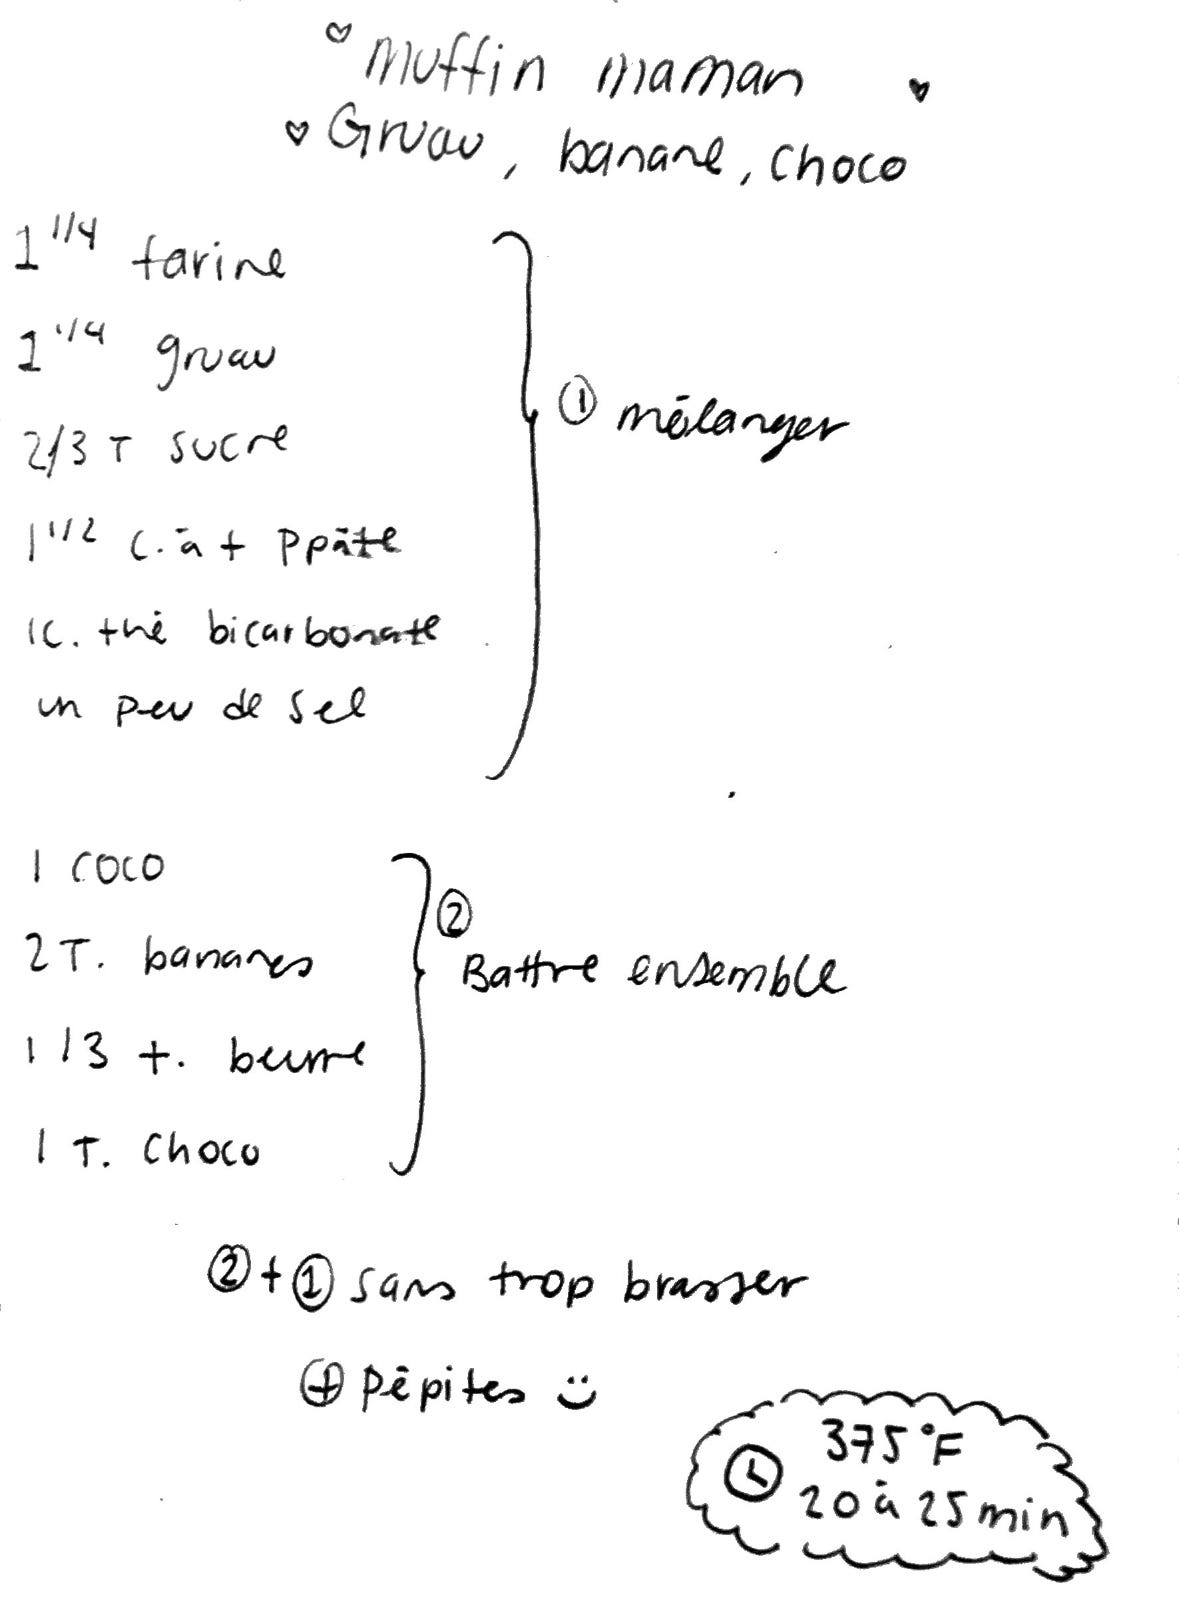 Muffin maman
Gruau, banane, choco
1 1/4 farine
1 1/4 gruau
2/3 T sucre
1 1/2 c. à t P pâte
1 c. thé bicarbonate
un peu de sel
① mélanger
1 coco
2 T. bananes
1/3 t. beurre
1 T. choco
② Battre ensemble
② + ① sans trop brasser
⊕ Pépites :)
375°F
20 à 25 min